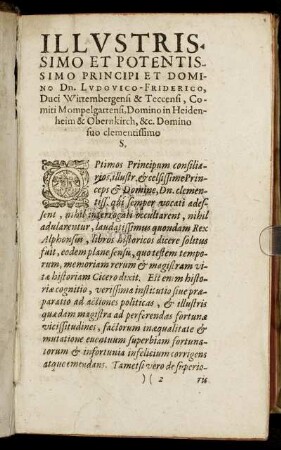 ILLVSTRIS-
SIMO ET POTENTIS-
SIMO PRINCIPI ET DOMI-
NO DN. LVDOVICO-FRIDERICO,
Duci Wirtembergensi & Teccensi, Co-
miti Mompelgartensi, Domino in Heiden-
heim & Obernkirch, &c. Domino
suo clementissimo
S.
OPtimos Principum consilia-
rios, illustr. & celsissime Prin-
ceps & Domine, Dn. clemen-
tiss. qui semper vocati ades-
sent, nihil interrogati occultarent, nihil
adularentur, laudatissimus quondam Rex
Alphonsus, libros historicos dicere solitus
fuit, eodem plane sensu, quo testem tempo-
rum, memoriam rerum & magistram vi-
tæ historiam Cicero dixit. Est enim histo-
riæ cognitio, verissima institutio sive præ-
paratio ad actiones politicas, & illustris
quædam magistra ad perferendas fortunæ
vicissitudines, factorum inæqualitate &
mutatione eventuum superbiam fortuna-
torum & infortunia infelicium corrigens
atque emendans. Tametsi vero de superio-
)( 2 ris